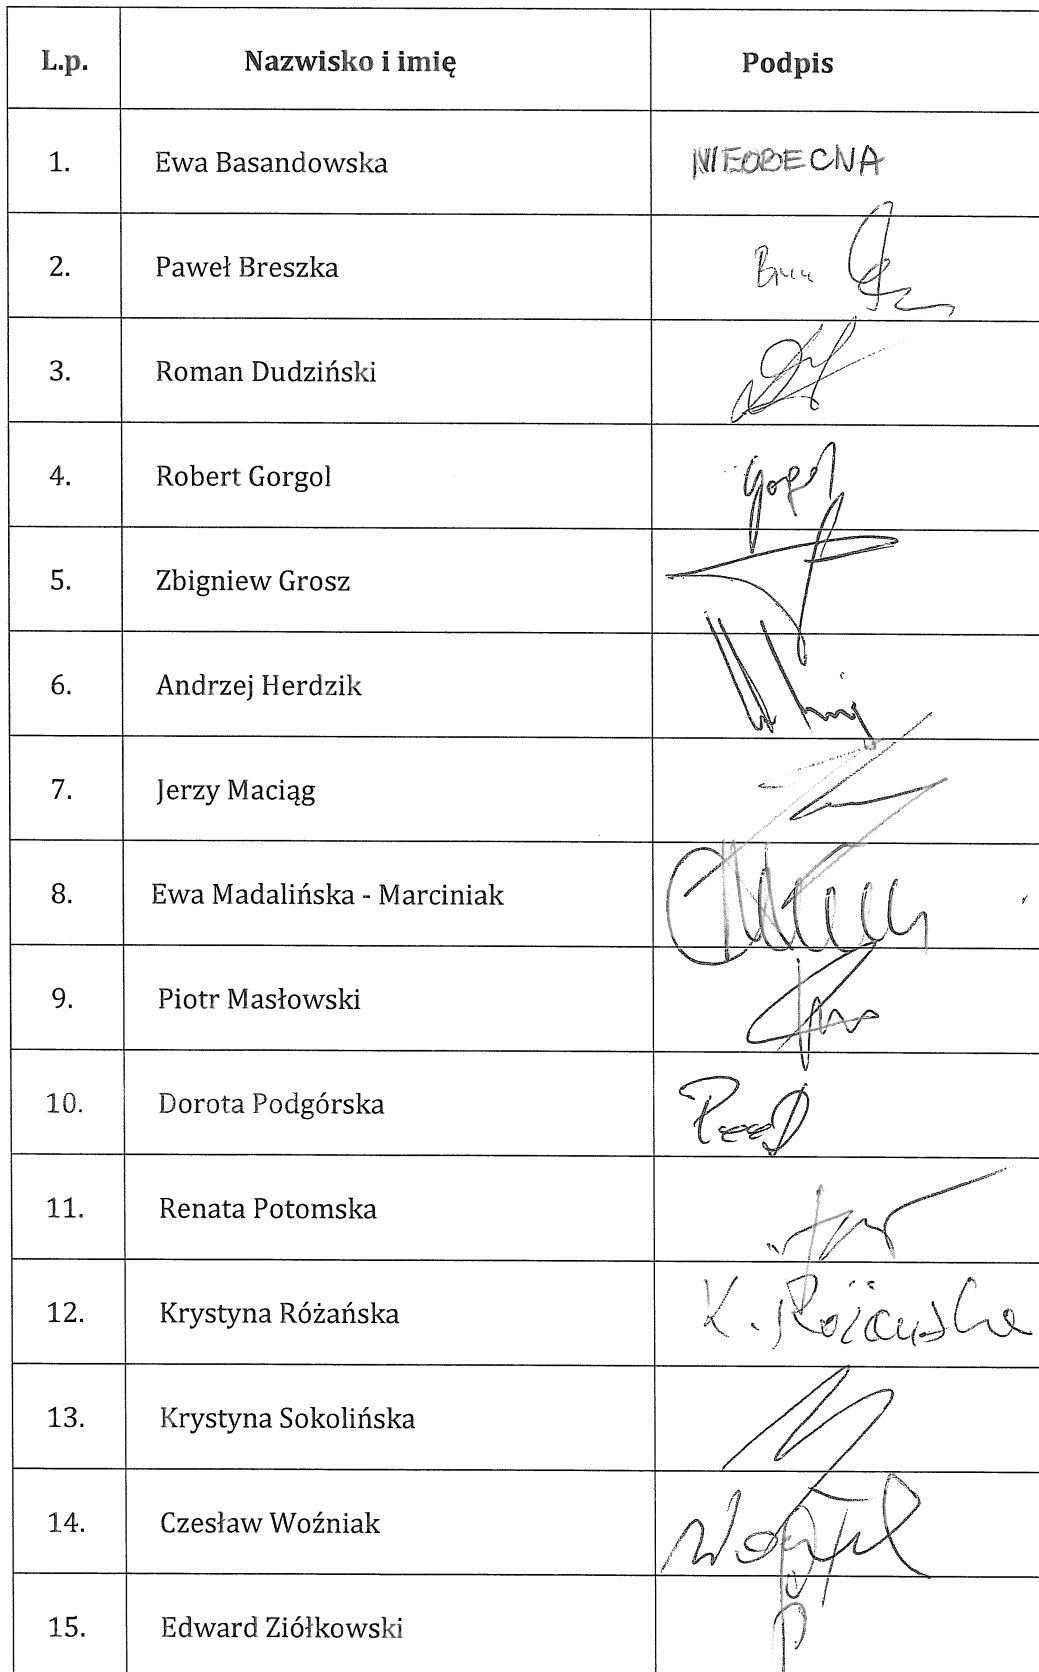 L.p. Nazwisko i imię Podpis
1. Ewa Basandowska NIEOBECNA
2. Paweł Breszka
3. Roman Dudziński
4. Robert Gorgol
5. Zbigniew Grosz
6. Andrzej Herdzik
7. Jerzy Maciąg
8. Ewa Madalińska - Marciniak
9. Piotr Masłowski
10. Dorota Podgórska
11. Renata Potomska
12. Krystyna Różańska K. Różańska
13. Krystyna Sokolińska
14. Czesław Woźniak
15. Edward Ziółkowski